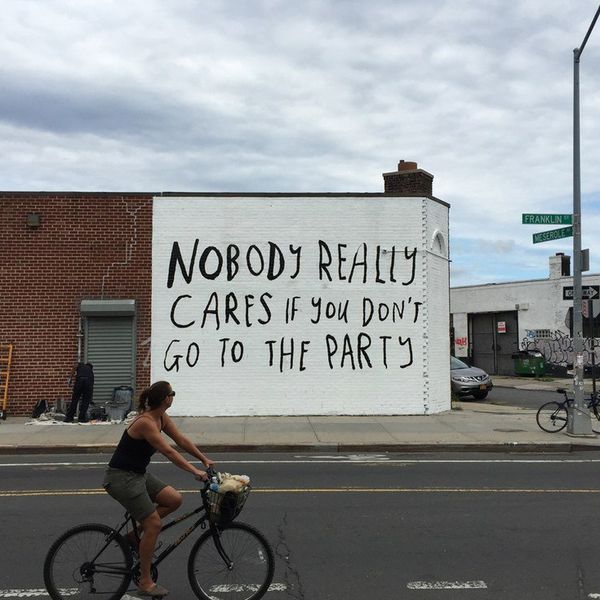 NOBODY REALLY
CARES IF YOU DON'T
GO TO THE PARTY
FRANKLIN ST
MESEROLE AV